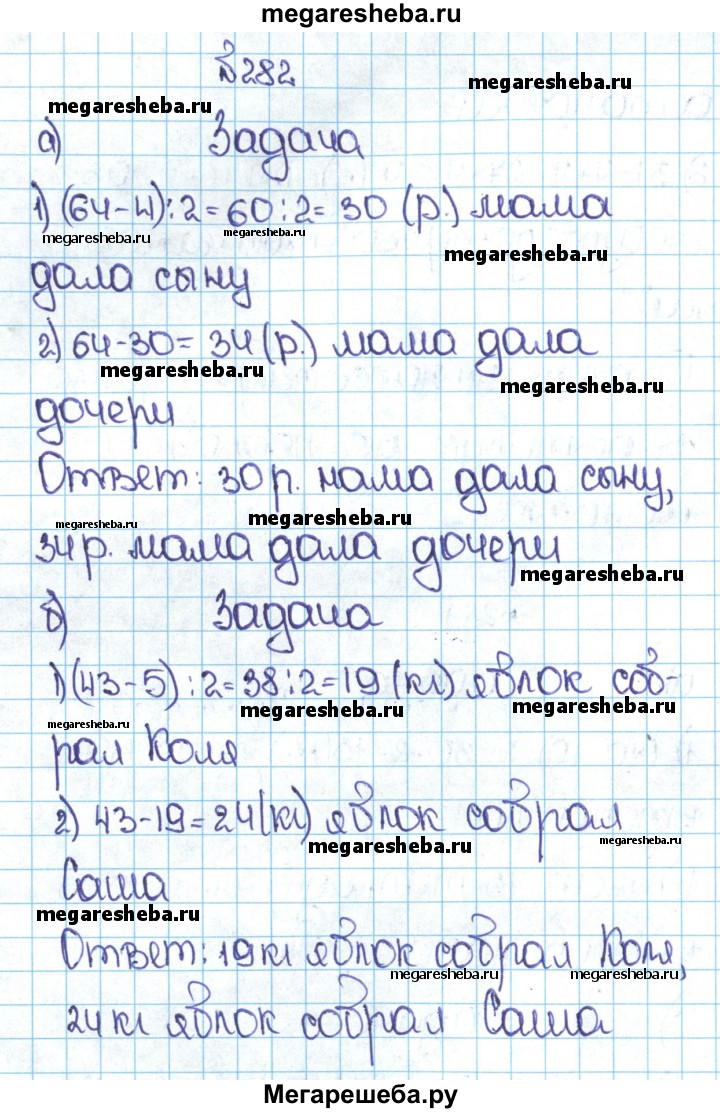 megaresheba.ru
№282
megaresheba.ru
megaresheba.ru
а) Задача
1) (64-4):2=60:2=30 (р.) мама
megaresheba.ru
megaresheba.ru
megaresheba.ru
дала сыну
2) 64-30=34(р.) мама дала
megaresheba.ru
megaresheba.ru
дочери
Ответ: 30 р. мама дала сыну,
megaresheba.ru
megaresheba.ru
34 р. мама дала дочери
megaresheba.ru
б) Задача
1)(43-5):2=38:2=19(кг) яблок соб-
megaresheba.ru
megaresheba.ru
megaresheba.ru
рал Коля
2) 43-19=24(кг) яблок собрал
megaresheba.ru
megaresheba.ru
Саша
megaresheba.ru
Ответ: 19 кг яблок собрал Коля,
megaresheba.ru
megaresheba.ru
24 кг яблок собрал Саша
Мегарешеба.ру